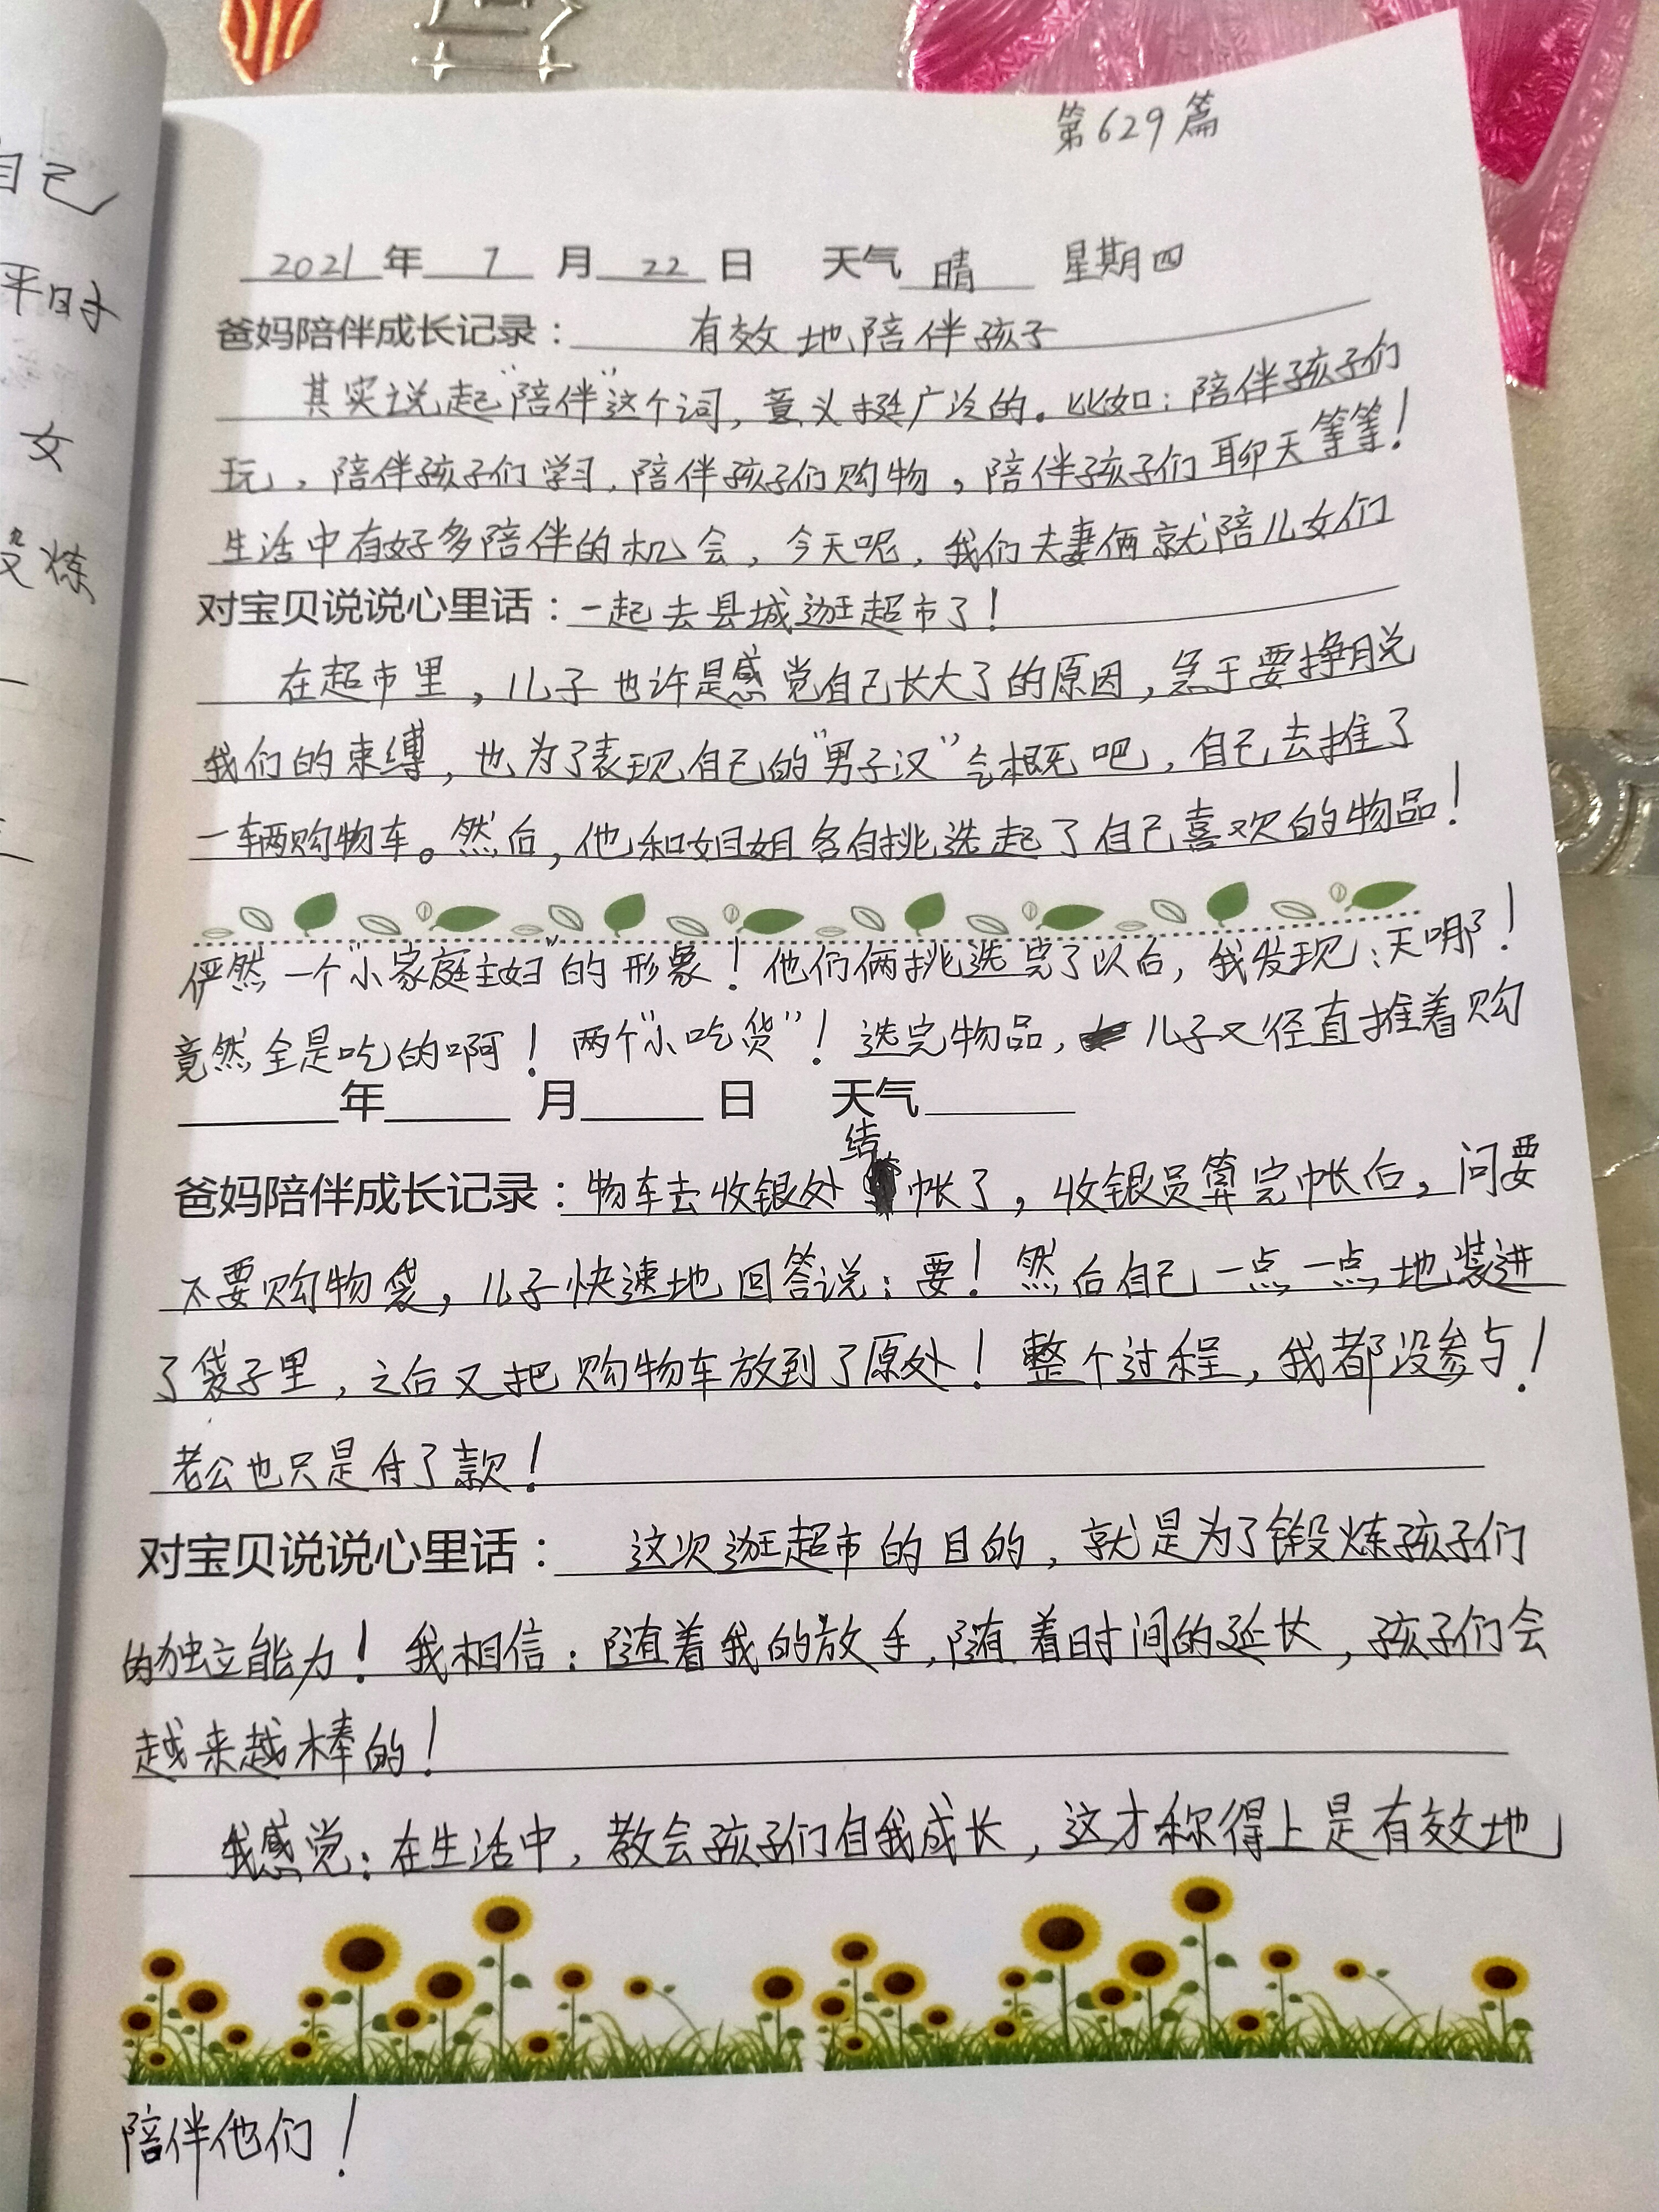 第629篇
2021年 7 月 22 日 天气 晴 星期四
爸妈陪伴成长记录：有效地陪伴孩子
其实说起“陪伴”这个词，意义挺广泛的。比如：陪伴孩子们
玩，陪伴孩子们学习，陪伴孩子们购物，陪伴孩子们聊天等等！
生活中有好多陪伴的机会，今天呢，我们夫妻俩就陪儿女们
对宝贝说说心里话：一起去县城逛超市了！
在超市里，儿子也许是感觉自己长大了的原因，急于要挣脱
我们的束缚，也为了表现自己的“男子汉”气概吧，自己去推了
一辆购物车。然后，他和姐姐各自挑选起了自己喜欢的物品！
俨然一个“小家庭主妇”的形象！他们俩挑选完了以后，我发现：天哪！
竟然全是吃的啊！两个“小吃货”！选完物品，儿子又径直推着购
年 月 日 天气
爸妈陪伴成长记录：物车去收银处结帐了，收银员算完帐后，问要
不要购物袋，儿子快速地回答说：要！然后自己一点一点地装进
了袋子里，之后又把购物车放到了原处！整个过程，我都没参与！
老公也只是付了款！
对宝贝说说心里话：这次逛超市的目的，就是为了锻炼孩子们
的独立能力！我相信：随着我的放手，随着时间的延长，孩子们会
越来越棒的！
我感觉：在生活中，教会孩子们自我成长，这才称得上是有效地
陪伴他们！
自己
平时
女
炼